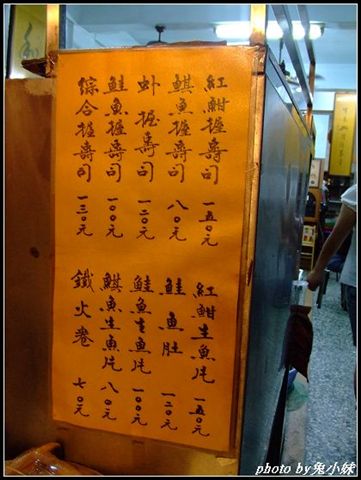 紅魽握壽司 一五〇元
鯕魚握壽司 八〇元
虾握壽司 一二〇元
鮭魚握壽司 一〇〇元
綜合握壽司 一三〇元
紅魽生魚片 一五〇元
鮭魚肚 一二〇元
鮭魚生魚片 一〇〇元
鯕魚生魚片 八〇元
鐵火卷 七〇元
photo by 兔小妹